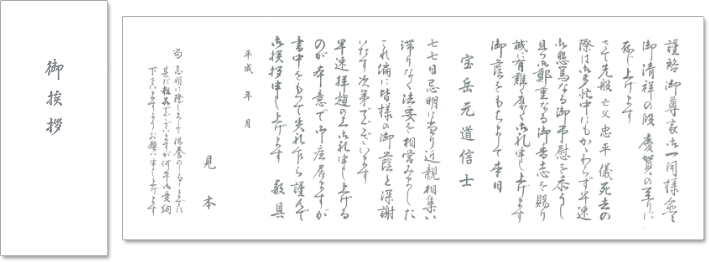 御挨拶
謹啓 御尊家御一同様愈々
御清祥の段 慶賀の至りに
存じ上げます
さて先般 亡父 忠平 儀死去の
際は御多忙中にもかゝわらず早速
御懇篤なる御弔慰を忝うし
且つ御鄭重なる御香志を賜り
誠に有難く厚く御礼申し上げます
御蔭をもちまして本日
宝岳元道信士
七七日忌明に当り近親相集い
滞りなく法要を相営みました
これ偏に皆様の御蔭と深謝
いたす次第でございます
早速拝趨の上御礼申し上げる
のが本意で御座居ますが
書中をもって失礼乍ら謹んで
御挨拶申し上げます 敬具
平成 年 月
見本
尚 忌明に際しまして供養のしるしまでに
甚だ粗品でございますが何卒御受納
下さいますようお願い申し上げます